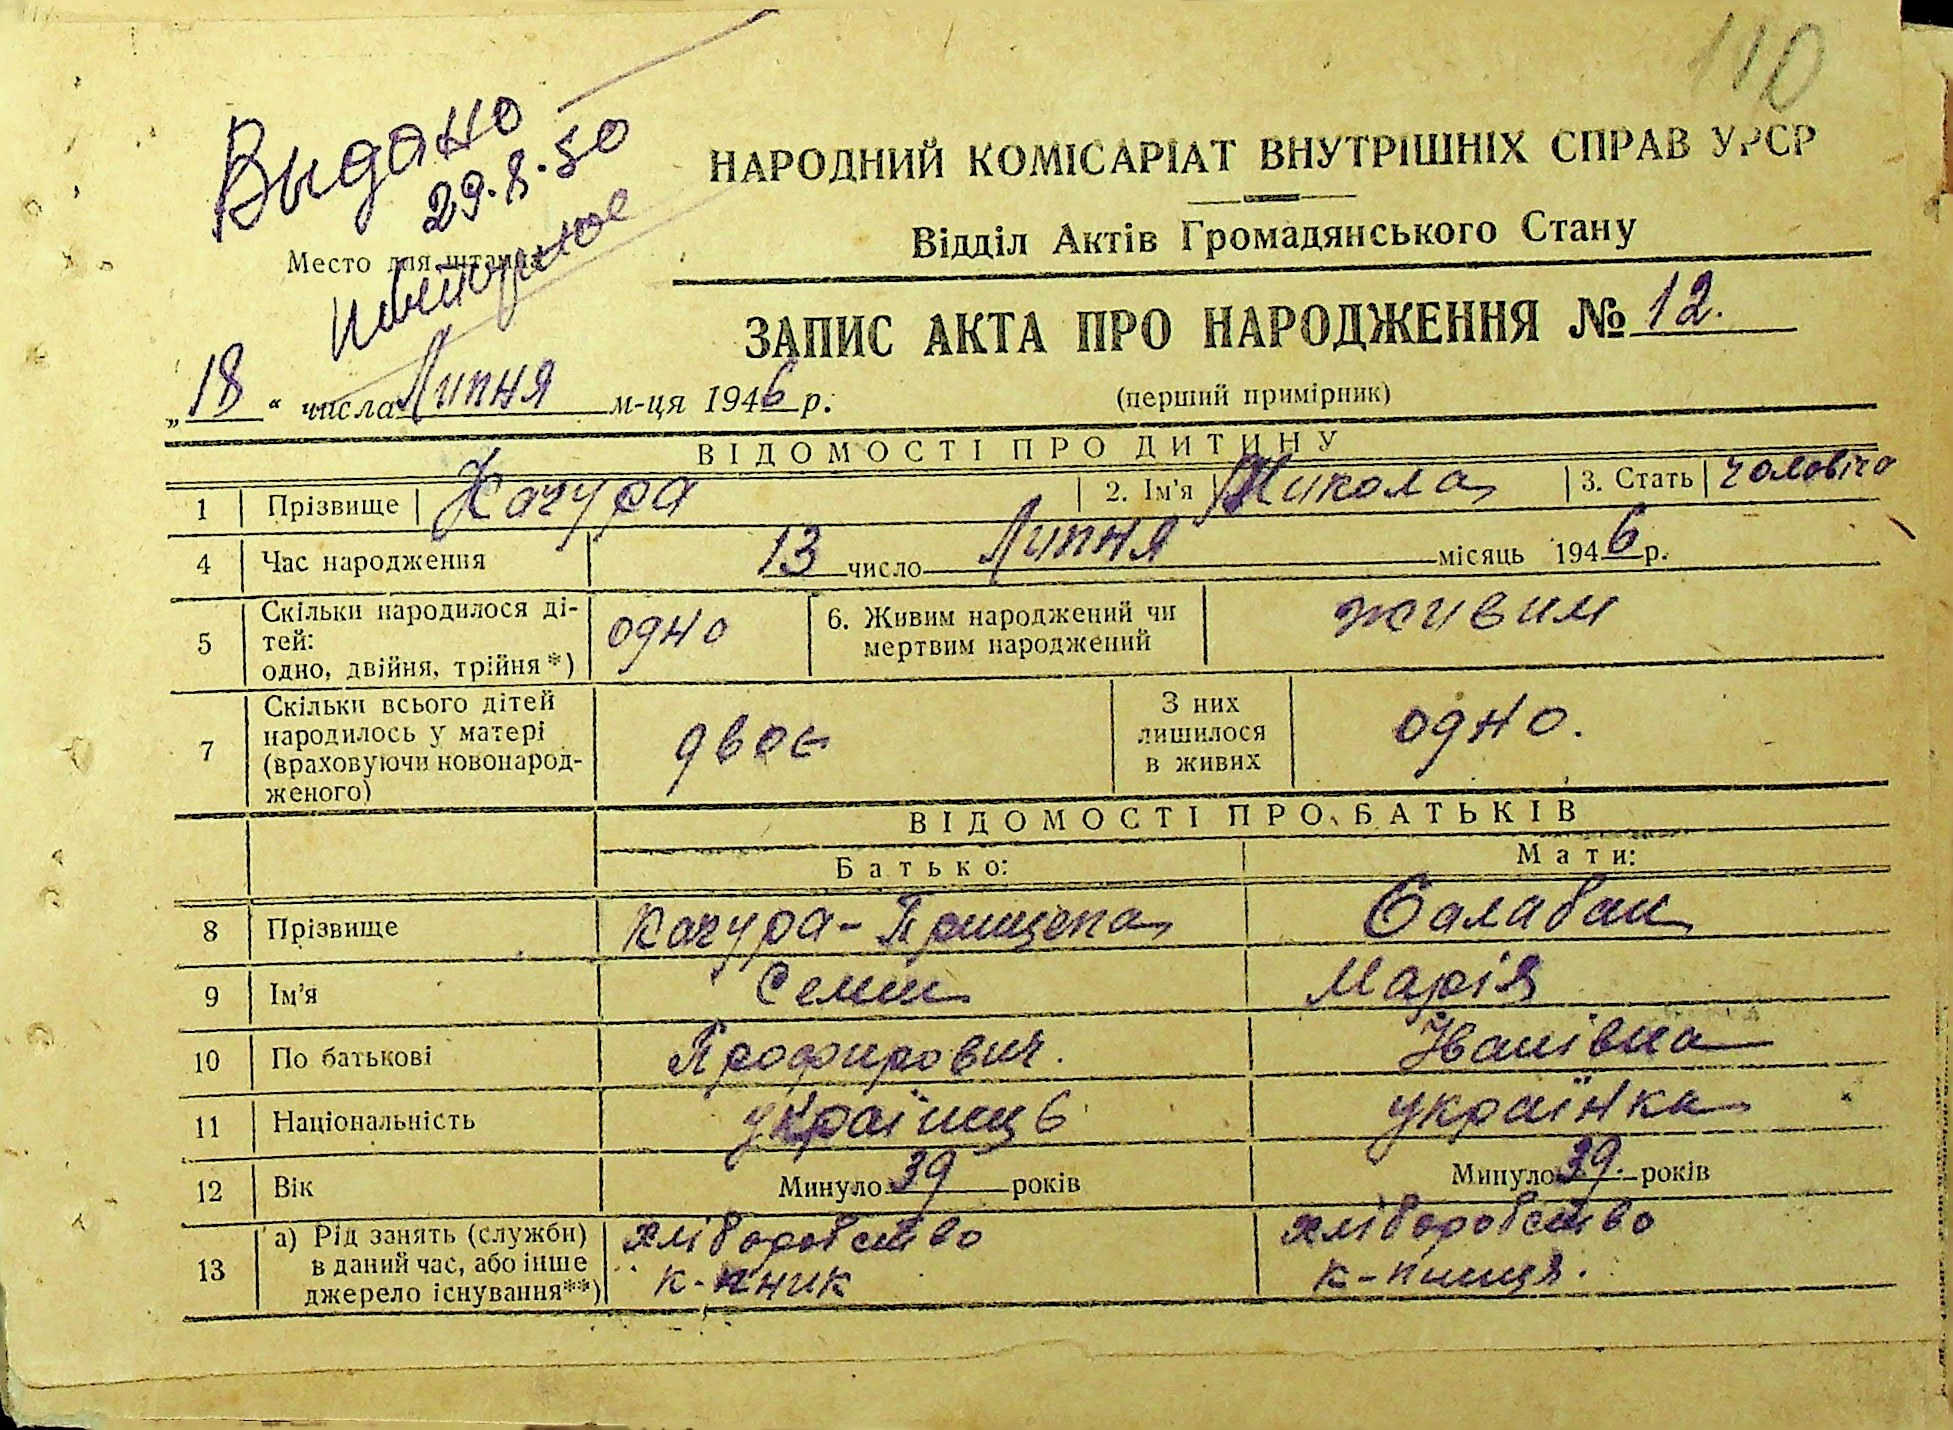 110
Выдано
29.8.50
повторное
Место для штампа
НАРОДНИЙ КОМІСАРІАТ ВНУТРІШНІХ СПРАВ УРСР
Відділ Актів Громадянського Стану
ЗАПИС АКТА ПРО НАРОДЖЕННЯ № 12.
„18“ числа Липня м-ця 1946 р.
(перший примірник)
ВІДОМОСТІ ПРО ДИТИНУ
1 Прізвище Качура 2. Ім'я Микола 3. Стать чоловіча
4 Час народження 13 число Липня місяць 1946 р.
5 Скільки народилося ді-
тей:
одно, двійня, трійня*) одно 6. Живим народжений чи
мертвим народжений живим
7 Скільки всього дітей
народилось у матері
(враховуючи новонарод-
женого) двоє З них
лишилося
в живих одно.
ВІДОМОСТІ ПРО БАТЬКІВ
Батько: Мати:
8 Прізвище Качура-Прищепа Балабан
9 Ім'я Семен Марія
10 По батькові Профирович. Іванівна
11 Національність українець українка
12 Вік Минуло 39 років Минуло 39. років
13 а) Рід занять (служби)
в даний час, або інше
джерело існування**) хліборобство
к-пник хліборобство
к-пниця.